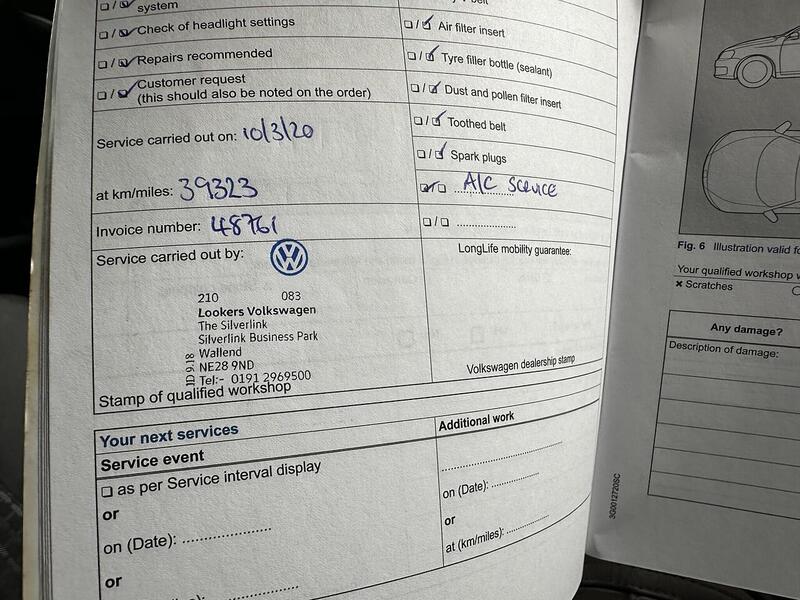 system
Check of headlight settings
Repairs recommended
Customer request
(this should also be noted on the order)
Service carried out on: 10/3/20
at km/miles: 39323
Invoice number: 48761
Service carried out by:
210 083
Lookers Volkswagen
The Silverlink
Silverlink Business Park
Wallend
NE28 9ND
Tel:- 0191 2969500
JD 9.18
Stamp of qualified workshop
belt
Air filter insert
Tyre filler bottle (sealant)
Dust and pollen filter insert
Toothed belt
Spark plugs
A/C Service
LongLife mobility guarantee:
Volkswagen dealership stamp
Your next services
Service event
as per Service interval display
or
on (Date):
or
Additional work
on (Date):
or
at (km/miles):
Fig. 6 Illustration valid
Your qualified workshop
× Scratches
Any damage?
Description of damage:
3G0012720SC